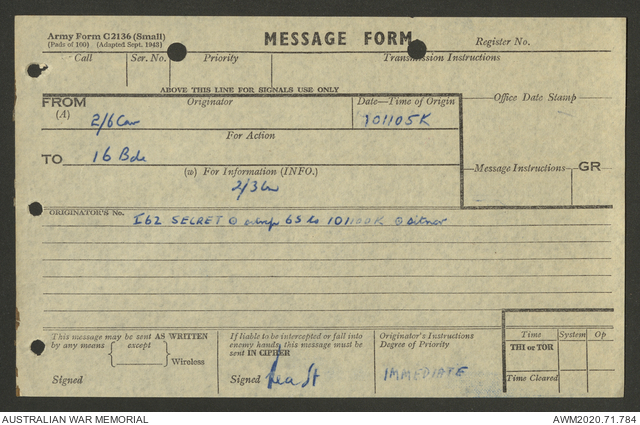 Army Form C2136 (Small)
(Pads of 100) (Adapted Sept. 1943)
MESSAGE FORM
Register No.
Call Ser. No. Priority Transmission Instructions
ABOVE THIS LINE FOR SIGNALS USE ONLY
FROM Originator Date—Time of Origin Office Date Stamp
(A) 2/6 Cav 101105K
For Action
TO 16 Bde
(w) For Information (INFO.) Message Instructions GR
2/3
ORIGINATOR'S No. I62 SECRET 65 101100K sitnor
This message may be sent AS WRITTEN
by any means except
Wireless
Signed
If liable to be intercepted or fall into
enemy hands, this message must be
sent IN CIPHER
Signed
Originator's Instructions
Degree of Priority
IMMEDIATE
Time System Op
THI or TOR
Time Cleared
AUSTRALIAN WAR MEMORIAL AWM2020.71.784